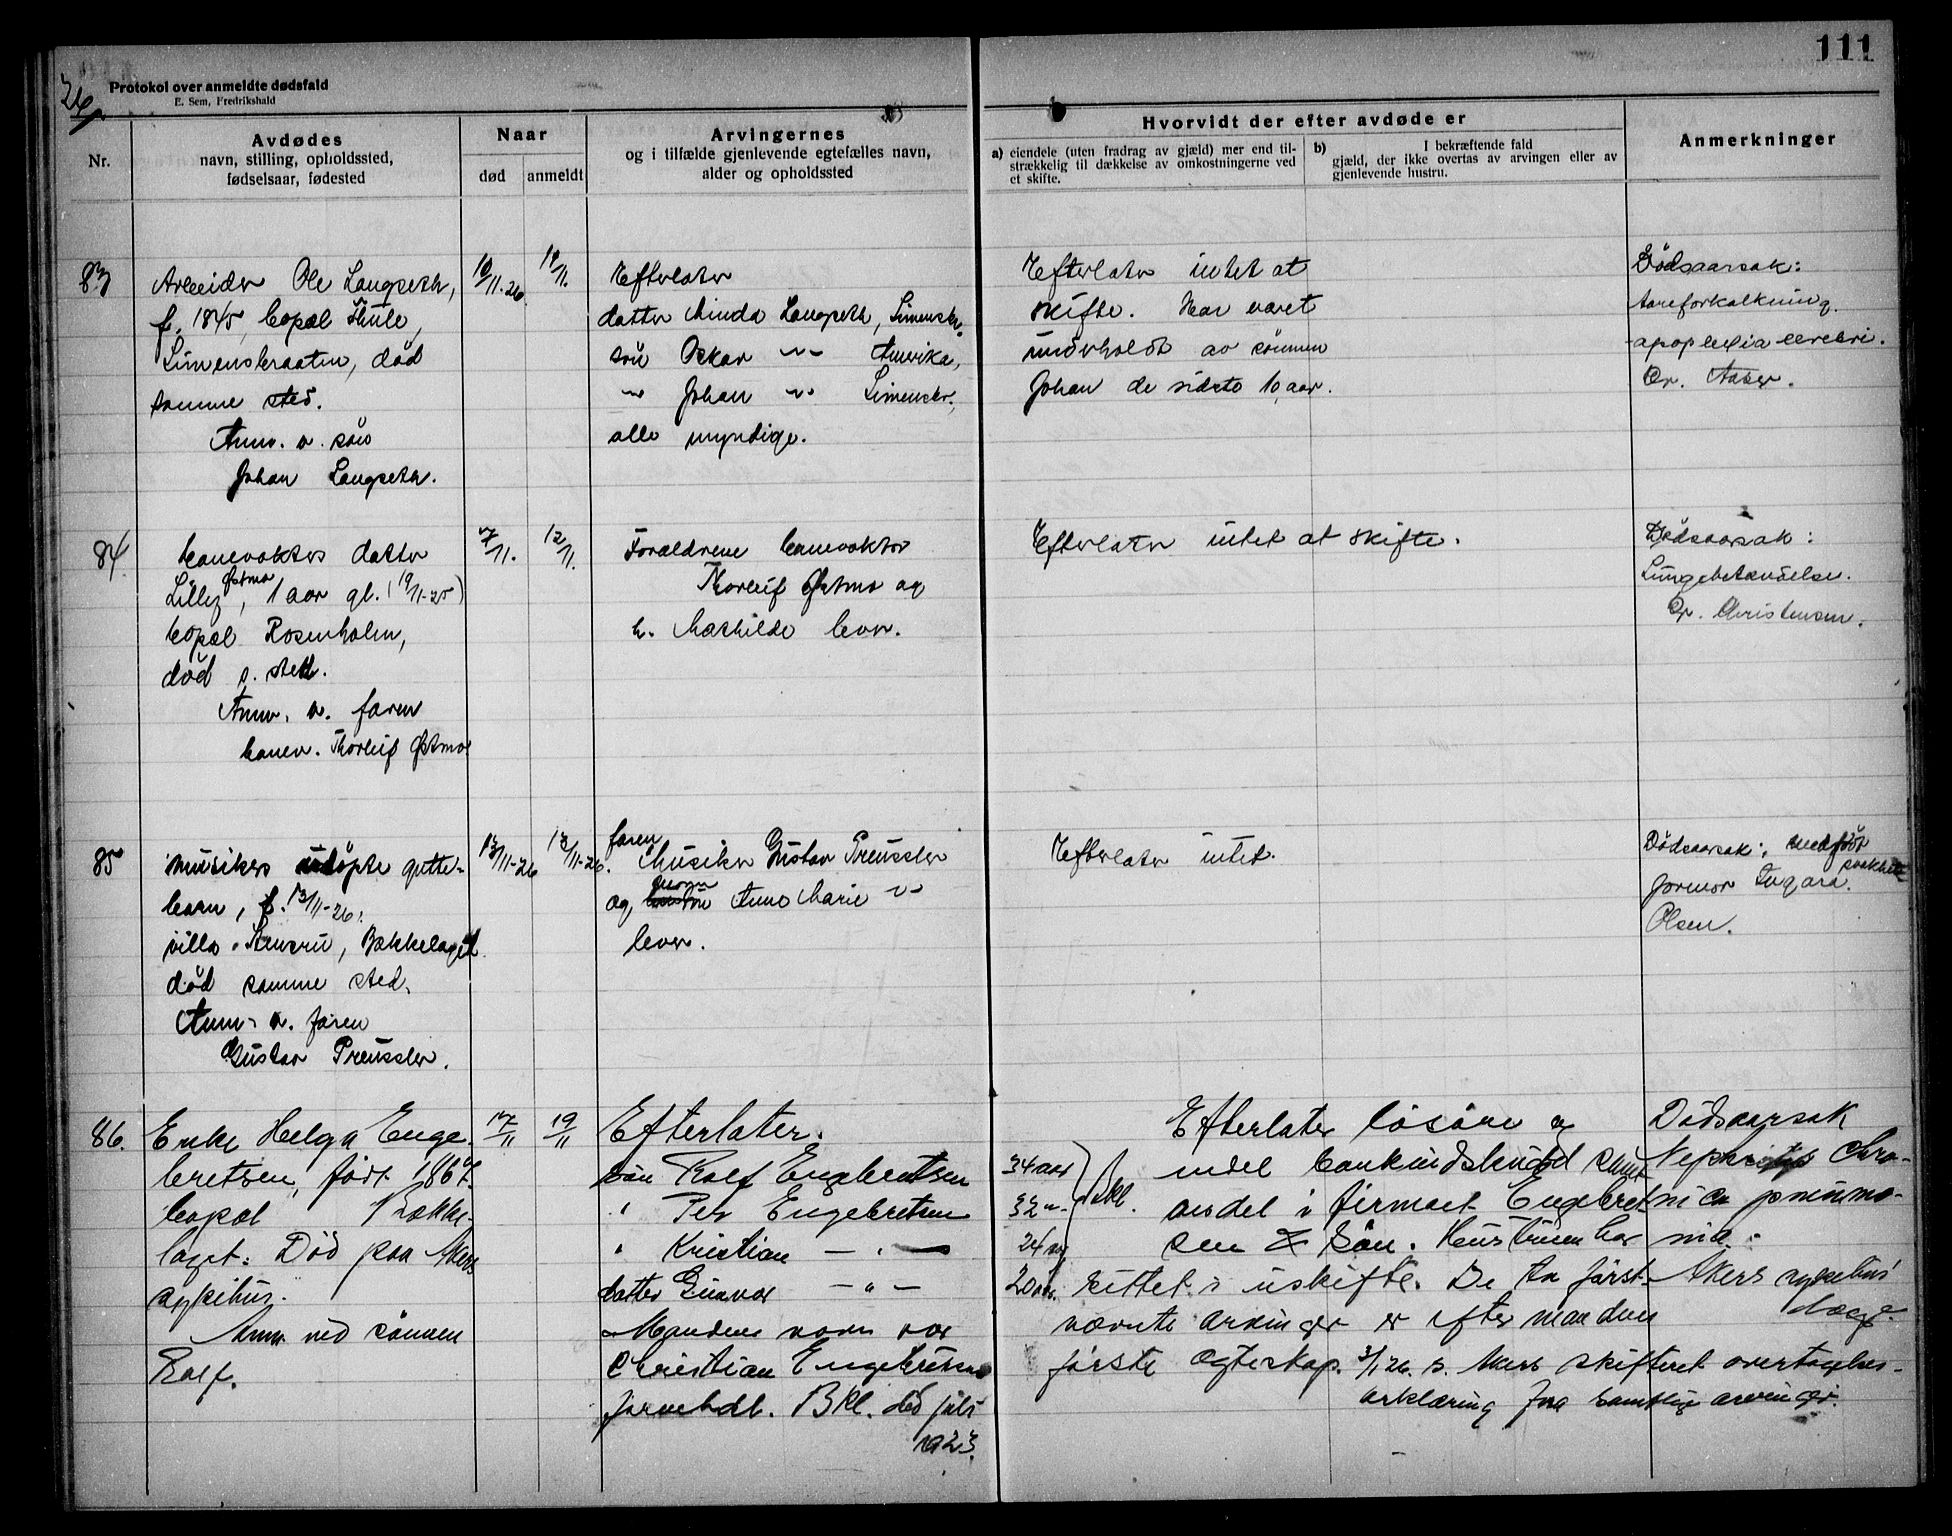 111
26
Protokol over anmeldte dødsfald
E. Sem, Fredrikshald
Nr.
Avdødes
navn, stilling, opholdssted,
fødselsaar, fødested
Naar
død
anmeldt
Arvingernes
og i tilfælde gjenlevende egtefælles navn,
alder og opholdssted
Hvorvidt der efter avdøde er
a) eiendele (uten fradrag av gjæld) mer end til-
strækkelig til dækkelse av omkostningerne ved
et skifte.
b) I bekræftende fald
gjæld, der ikke overtas av arvingen eller av
gjenlevende hustru.
Anmerkninger
83
Arbeider Ole Langseth,
f. 1845, bopæl Thule,
Simensbraaten, död
samme sted.
Anm. v. sön
Johan Langseth.
10/11-26.
12/11.
Efterlater
datter Minda Langseth, Simensbr.
sön Oskar -"- Amerika,
-"- Johan -"- Simensbr.,
alle myndige.
Efterlater intet at
skifte. Har været
underholdt av sönnen
Johan de sidste 10 aar.
Dödsaarsak:
Aareforkalkning.
apoplexia cerebri.
Dr. Aaser.
84.
banevokters datter
Lilly Østmo, 1 aar gl. (19/11-25)
bopæl Rosenholm,
död s. sted.
Anm. v. faren
banev. Thorleif Østmo
7/11.
12/11.
Forældrene banevokter
Thorleif Østmo og
h. Mathilde lever.
Efterlater intet at skifte.
Dödsaarsak:
Lungebetændelse.
Dr. Christensen.
85
Musikers udöpte gutte-
barn, f. 13/11-26,
villa, Bækkelaget
död samme sted.
Anm. v. faren
Gustav Preussler.
13/11-26
13/11-26.
faren
Musiker Gustav Preussler
og moren Anne Marie -"-
lever.
Efterlater intet.
Dödsaarsak: medföt
svakhet
Jormor Ingara
Olsen.
86.
Enke Helga Enge-
bretsen, født 1867.
bopæl Bække-
laget. Död paa Akers
sykehus.
Anm. ved sönnen
Rolf.
17/11
19/11
Efterlater.
sön Rolf Engebretsen
" Per Engebretsen
" Kristian — " —
datter Gunvor — " —
Mandens navn var
Christian Engebretsen
jernhdl. Bkl. död juli
1923.
34 aar
32 "
24 aar
20 aar.
Bkl.
Efterlater lösöre og
endel bankindskudd samt
andel i firmaet Engebret-
sen & Sön. Hustruen har
sittet i uskifte. De to först-
nævnte arvinger er efter mandens
förste ægteskap. 3/1 26. s. Akers skifteret overtagelses-
erklæring fra samtlige arvinger.
Dödsaarsak
Nephritis chro-
nica pneumo-
nia.
Akers sykehus'
læge.